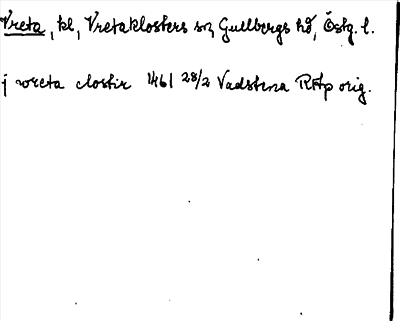 Vreta, kl, Vretaklosters sn, Gullbergs hd, Östg. l.
j wreta clostir 1461 28/2 Vadstena RAp orig.